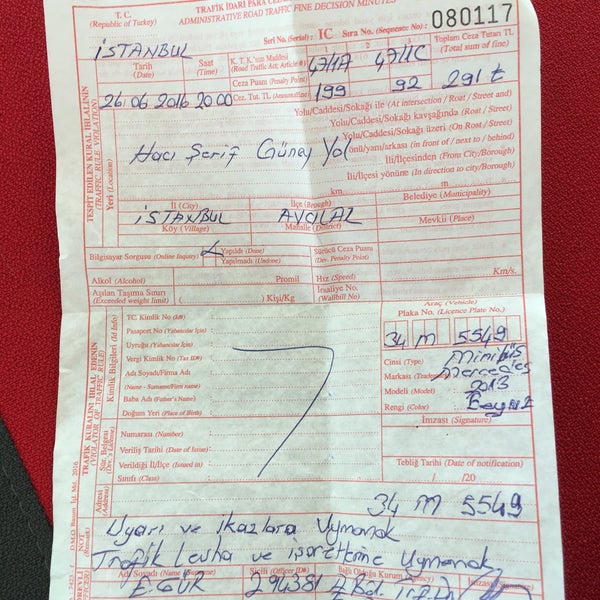 T. C. TRAFİK İDARİ PARA
(Republic of Turkey) ADMINISTRATIVE ROAD TRAFFIC FINE DECISION MINUTES
Seri No. (Serial) : IC Sıra No. (Sequence No) : 080117
İSTANBUL
Tarih (Date) Saat (Time) K. T. K.'nın Maddesi (Road Traffic Act; Article #) 47/1A 47/1C Toplam Ceza Tutarı TL (Total sum of fine)
Ceza Puanı (Penalty Point)
26 06 2016 20 00 Cez. Tut. TL 199 92 291 ₺
TESPİT EDİLEN KURAL İHLALİNİN
(TRAFFIC RULE VIOLATION)
Yeri (Location)
Yolu/Caddesi/Sokağı ile (At intersection / Roat / Street)
Yolu/Caddesi/Sokağı kavşağında (Roast / Street and)
Yolu/Caddesi/Sokağı üzeri (On Roast / Street)
Hacı Şerif Güney Yol önü/yanı/arkası (in front of / next to / behind)
İli/İlçesinden (From City/Borough)
İli/İlçesi yönüne (In direction to city/Borough)
km m
İl (City) İlçe (Borough) Belediye (Municipality)
İSTANBUL AVCILAR
Köy (Village) Mahalle (District) Mevkii (Place)
Bilgisayar Sorgusu (Online Inquiry) Yapıldı (Done) Sürücü Ceza Puanı
Yapılmadı (Undone) (Dev. Penalty Point)
Alkol (Alcohol) Promil Hız (Speed) Km/s.
Aşılan Taşıma Sınırı ( ) Kişi/Kg İrsaliye No.
(Exceeded weight limit) (Wailbill No)
TRAFİK KURALINI İHLAL EDENİN
(VIOLATOR OF TRAFFIC RULE)
Kimlik Bilgileri (Id Info)
TC. Kimlik No (Id#)
Pasaport No (Yabancılar İçin)
Uyruğu (Yabancılar İçin)
Vergi Kimlik No (Tax ID#)
Adı Soyadı/Firma Adı
(Name - Surname/Firm name)
Baba Adı (Father's Name)
Doğum Yeri (Place of Birth)
Araç (Vehicle)
Plaka No. (Licence Plate No.)
34 M 5549
Cinsi (Type) Minibüs
Markası Mercedes
Modeli (Model) 2013
Rengi (Color) Beyaz
Sür. Belgesi
Numarası (Number)
Veriliş Tarihi (Date of Issue)
Verildiği İl/İlçe (Issued in)
Sınıfı (Class)
İmzası (Signature)
Tebliğ Tarihi (Date of notification)
/ /20
Adresi
(Address)
34 M 5549
NOT
(Remark)
Uyarı ve ikazlara Uymamak
Trafik Levha ve işaretlerine Uymamak
Adı Soyadı Sicili (Officer ID#) Bağlı Olduğu Kurum İmzası
294381
D.M.O. Basım İşl. Müd. 2016